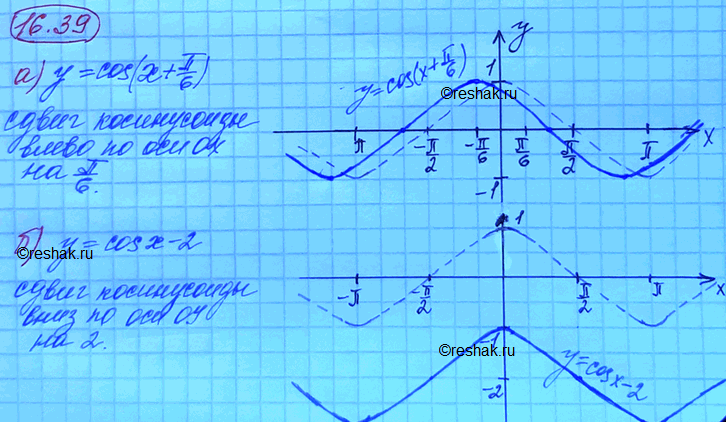 16.39
а) y = cos(x + π/6)
сдвиг косинусоиды
влево по оси ox
на π/6.
y
y = cos(x + π/6)
1
©reshak.ru
x
π
-π/2
-π/6
π/6
π/2
π
-1
б) y = cos x - 2
©reshak.ru
сдвиг косинусоиды
вниз по оси oy
на 2.
1
x
-π
-π/2
π/2
π
-1
©reshak.ru
y = cos x - 2
-2